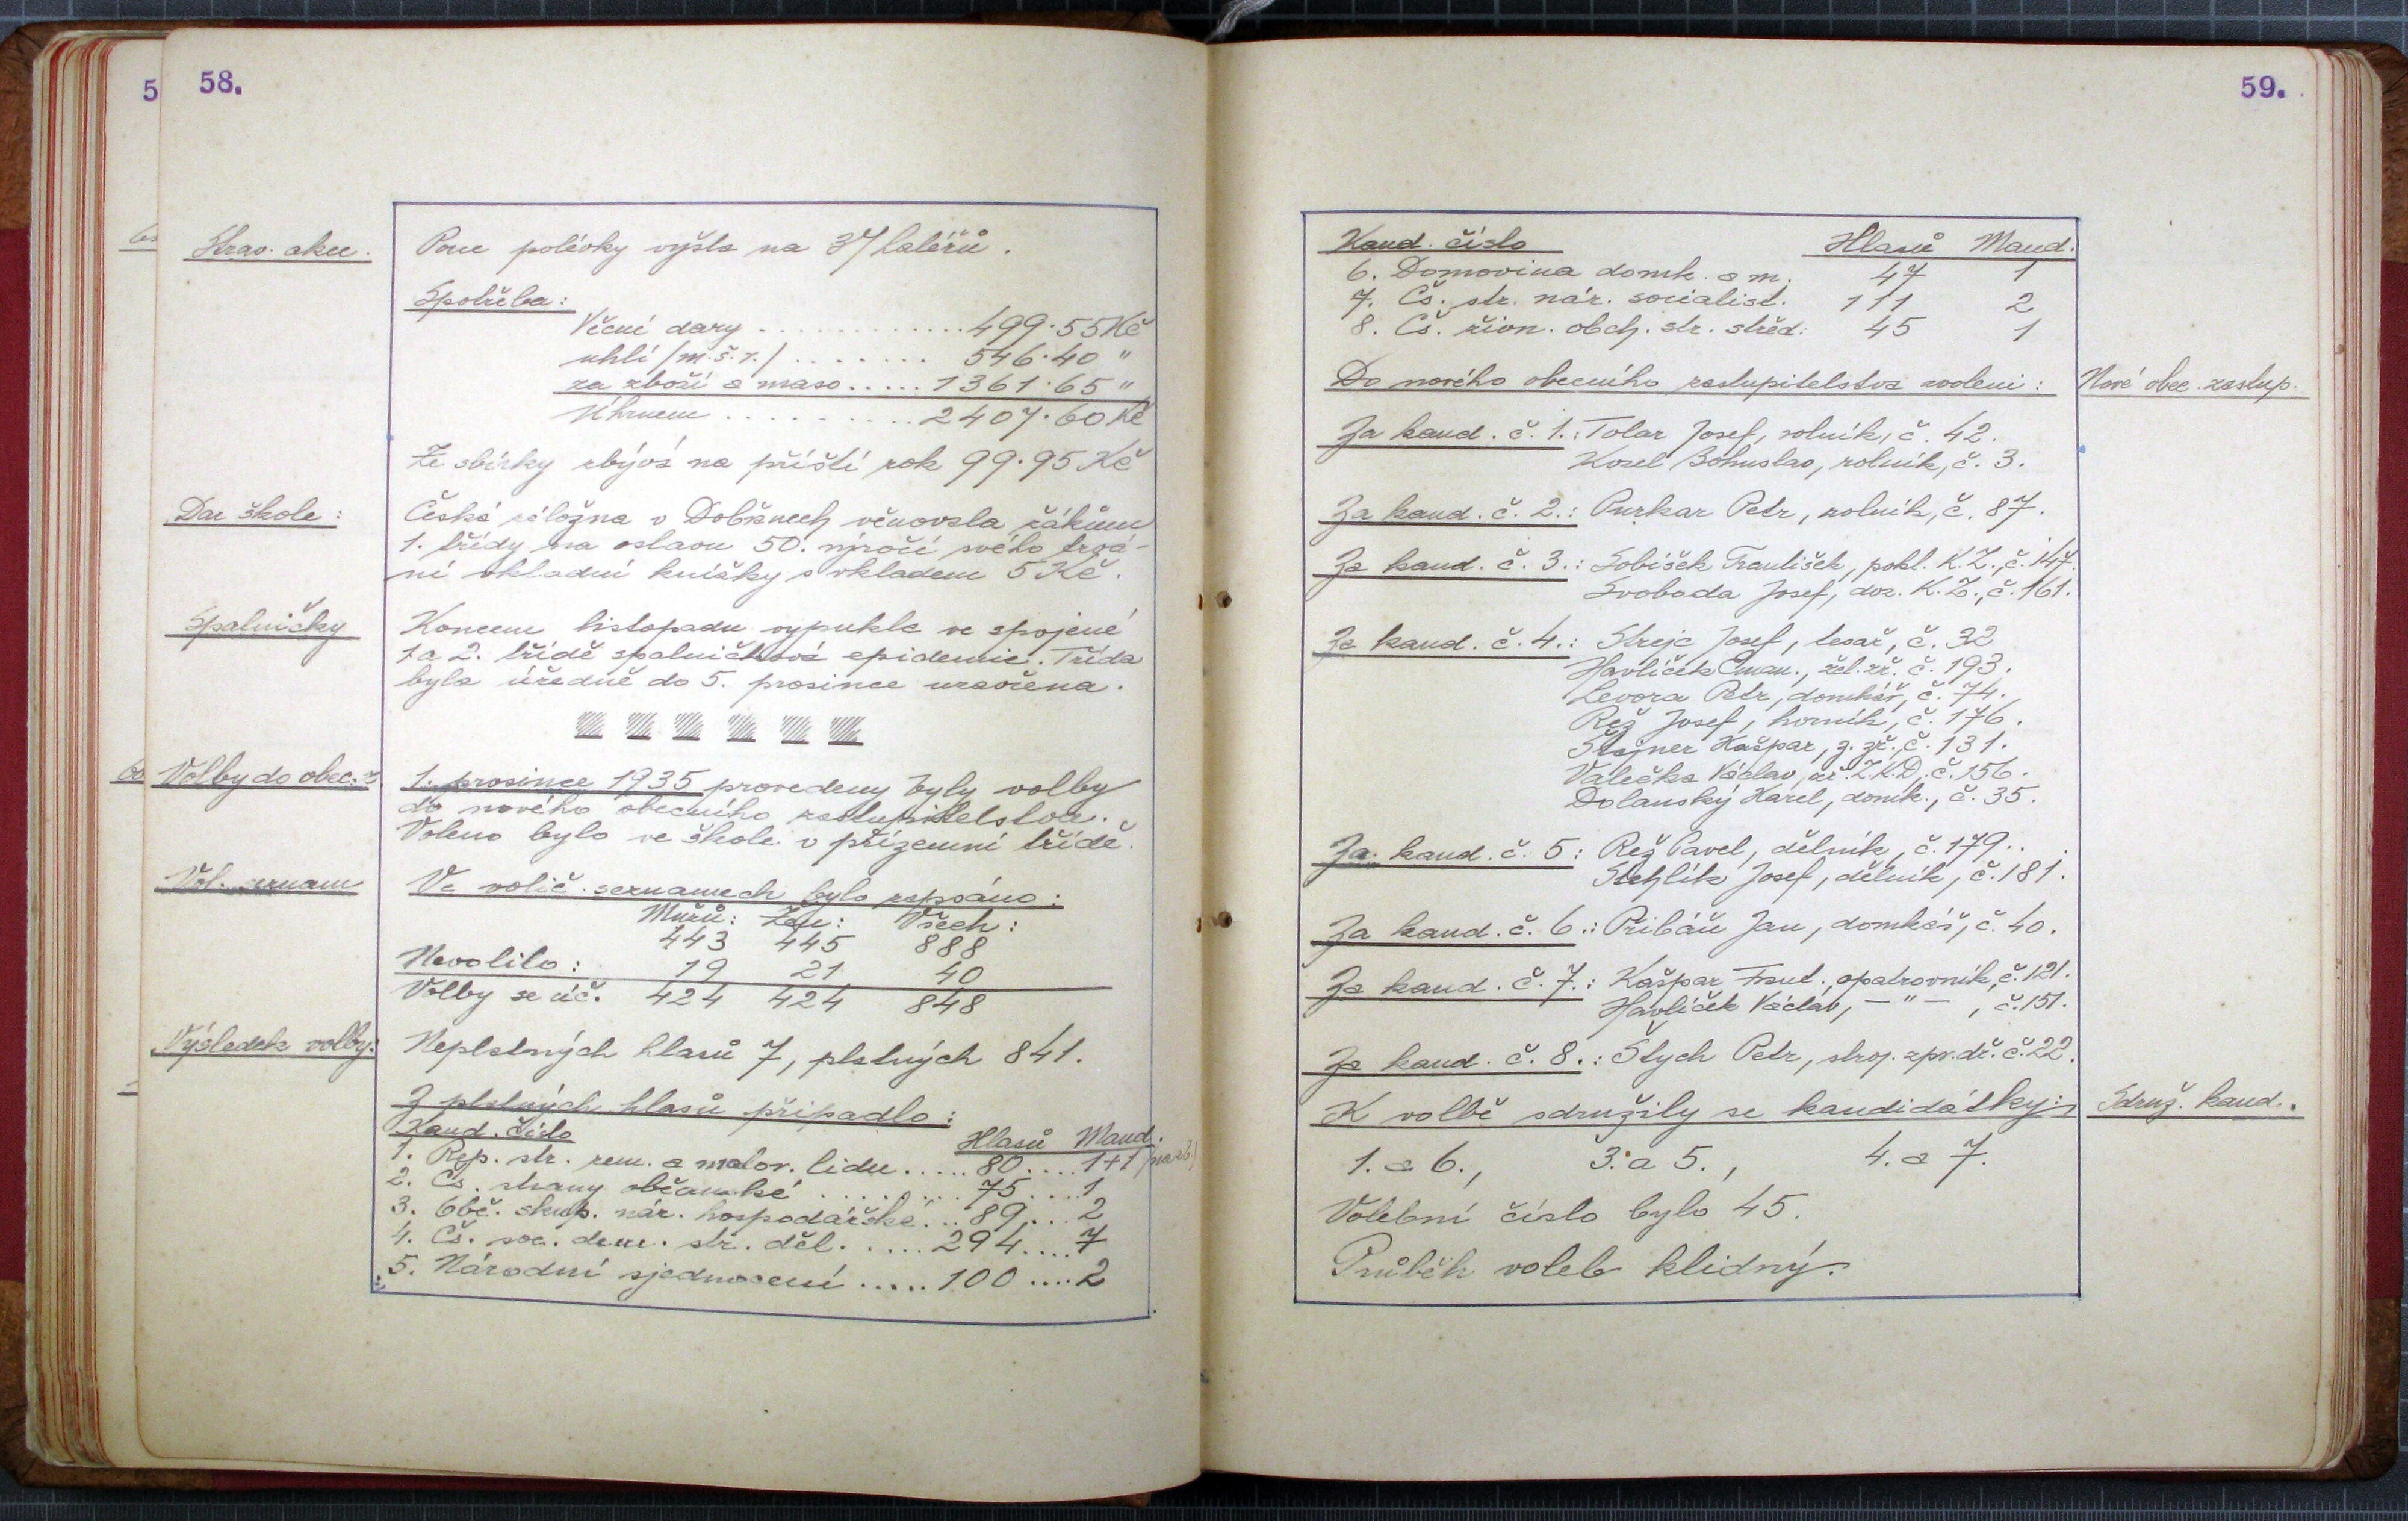 58.
5
Strav. akce.
Porce polévky vyšla na 37 haléřů.
Spotřeba:
Věcné dary ............. 499.55 Kč
uhlí /m.š.r./ ........ 546.40 "
za zboží a maso ..... 1361.65 "
Úhrnem ......... 2407.60 Kč
Ze sbírky zbývá na příští rok 99.95 Kč
Dar škole:
Česká záložna v Dobřanech věnovala žákům
1. třídy na oslavu 50. výročí svého trvá-
ní vkladní knížky s vkladem 5 Kč.
Spalničky
Koncem listopadu vypukla ve spojené
1 a 2. třídě spalničková epidemie. Třída
byla úředně do 5. prosince uzavřena.
Volby do obec. z
1. prosince 1935 provedeny byly volby
do nového obecního zastupitelstva.
Voleno bylo ve škole v přízemní třídě.
Vol. seznam
Ve volič. seznamech bylo zapsáno:
Mužů: Žen: Všech:
443 445 888
Nevolilo: 19 21 40
Volby se úč. 424 424 848
Výsledek volby:
Neplatných hlasů 7, platných 841.
Z platných hlasů připadlo:
Kand. číslo Hlasů Mand.
1. Rep. str. zem. a malor. lidu ..... 80 .... 1+1
2. Čs. strany občanské ......... 75 .... 1
3. Obč. skup. nár. hospodářské ... 89 .... 2
4. Čs. soc. dem. str. děl. ..... 294 .... 7
5. Národní sjednocení ..... 100 .... 2
59.
Kand. číslo Hlasů Mand.
6. Domovina domk. a m. 47 1
7. Čs. str. nár. socialist. 111 2
8. Čs. živn. obch. str. střed: 45 1
Do nového obecního zastupitelstva zvoleni:
Nové obec. zastup.
Za kand. č. 1.: Tolar Josef, rolník, č. 42.
Kozel Bohuslav, rolník, č. 3.
Za kand. č. 2.: Purkar Petr, rolník, č. 87.
Za kand. č. 3.: Sobíšek František, pokl. K.Z., č. 147.
Svoboda Josef, doz. K.Z., č. 161.
Za kand. č. 4.: Strejc Josef, tesař, č. 32
Havlíček Eman., žel. zř. č. 193.
Levora Petr, domkář, č. 74.
Rež Josef, horník, č. 176.
Štajner Kašpar, z. zř. č. 131.
Valečka Václav, zř. Z.K.D., č. 156.
Dolanský Karel, domk., č. 35.
Za kand. č. 5: Rež Pavel, dělník, č. 179..
Stehlík Josef, dělník, č. 181.
Za kand. č. 6.: Přibáň Jan, domkář, č. 40.
Za kand. č. 7.: Kašpar Frant., opatrovník, č. 121.
Havlíček Václav, — " — , č. 151.
Za kand. č. 8.: Štych Petr, stroj. zpr. dř. č. 22.
K volbě sdružily se kandidátky:
Sdruž. kand.
1. a 6., 3. a 5., 4. a 7.
Volební číslo bylo 45.
Průběh voleb klidný.